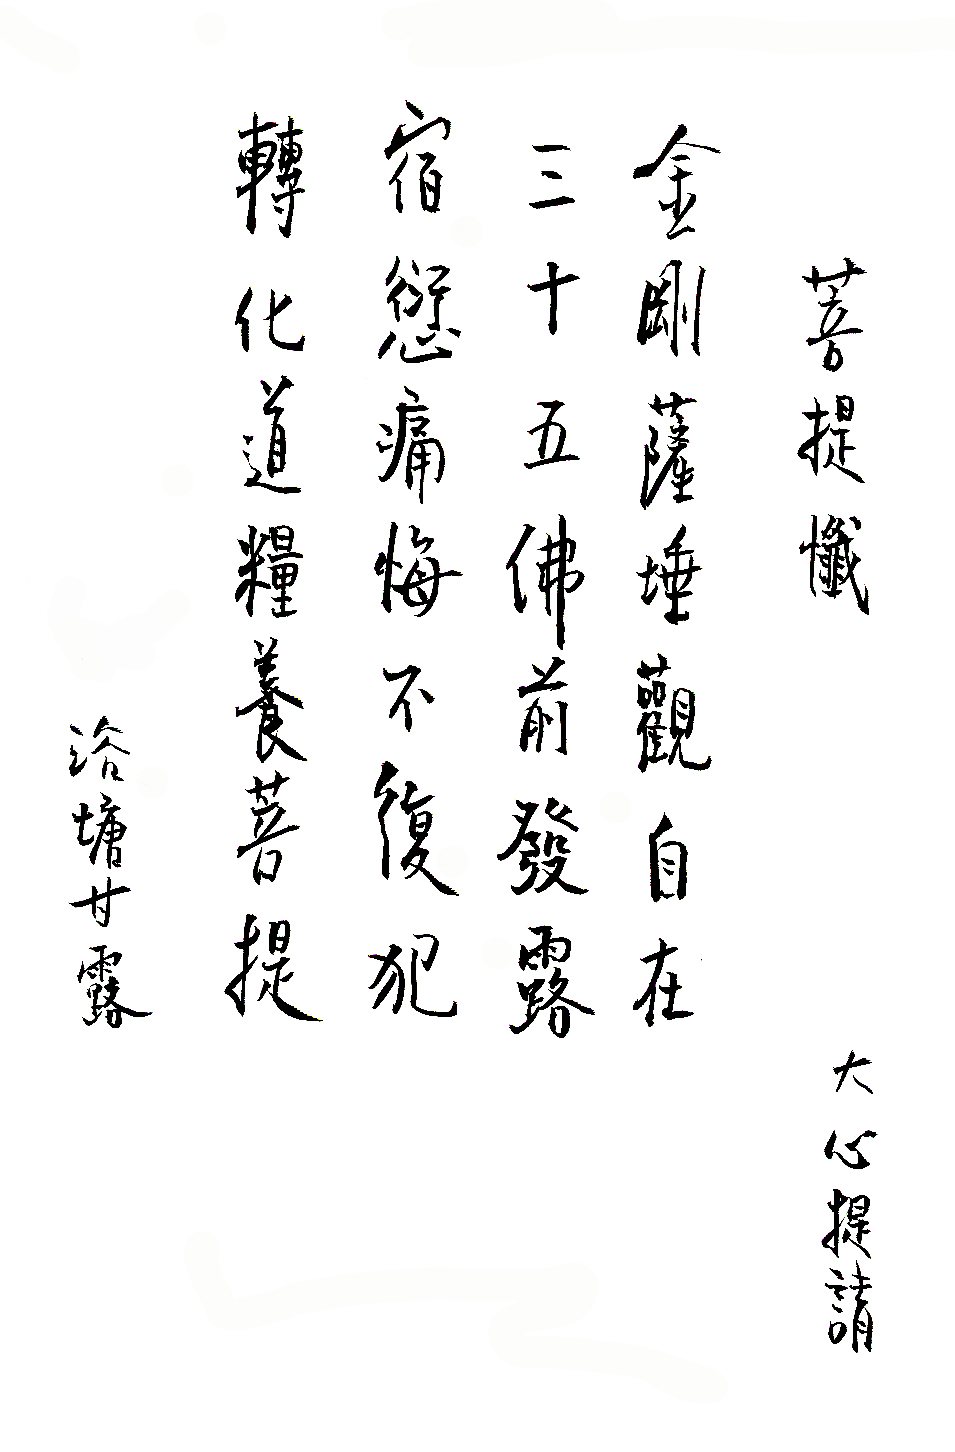 菩提懺
大心提請
金剛薩埵觀自在
三十五佛前發露
宿愆痛悔不復犯
轉化道糧養菩提
浴塘甘露